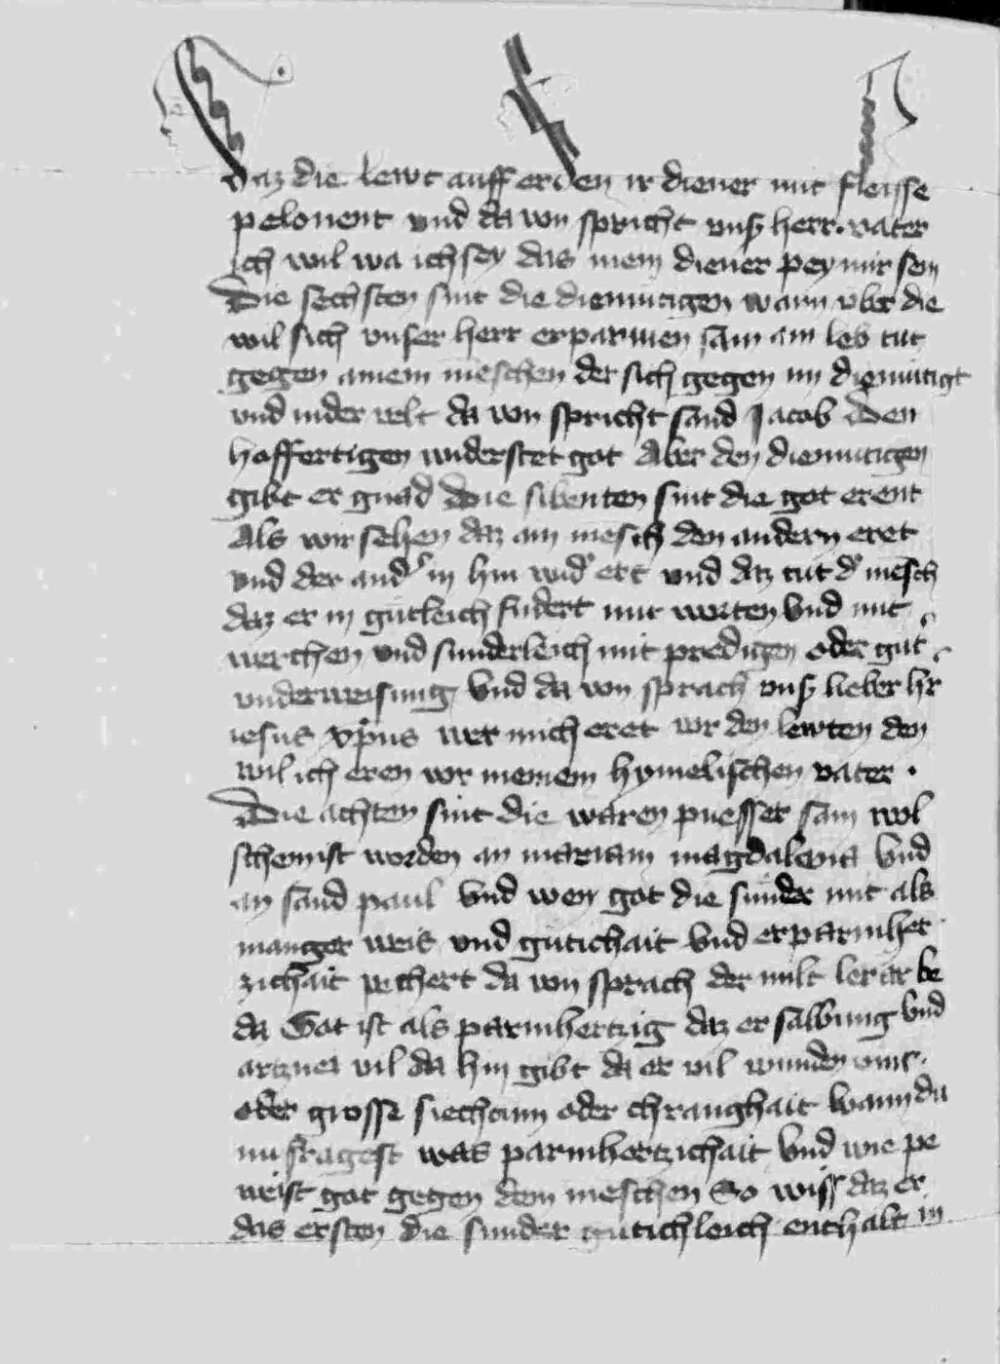 daz die lewt auff erden ir diener mit fleisse
pelonent vnd da von spricht vnß herr. vater
ich wil wa ich sey das mein diener pey mir sein
Die sechsten sint die diemutigen wann vber die
wil sich vnser herr erparmen sam ain leb tut
gegen ainem meschen der sich gegen im diemutigt
vnd in der welt da von spricht sand Jacob Den
hoffertigen widerstet got Aber den diemutigen
gibt er gnad Die sibenten sint die got erent
Als wir sehen daz ain mesch den andern eret
vnd der and' in hin wid' ert vnd daz tut d' mesch
daz er in gutleich fudert mit worten vnd mit
werchen vnd sunderleich mit predigen oder gut'
vnderweisung Vnd da von sprach vnß lieber h'r
iesus xpus wer mich eret vor den lewten den
wil ich eren vor meinem hymelischen vater .
Die achten sint die waren puesser sam wol
schein ist worden an mariam magdalena Vnd
an sand paul Vnd wen got die sunder mit als
maniger weis vnd gutichait Vnd erparmher
zichait pechert da von sprach der milt lerar be
da Got ist als parmhertzig daz er salbung Vnd
artznei vil da hin gibt da er vil wunden vint.
oder grosse siechtum oder chrangkhait Wann du
nu fragest was parmhertzichait Vnd wie pe
weist got gegen dem meschen So wiss daz er
das ersten die sunder gutichleich enthalt in